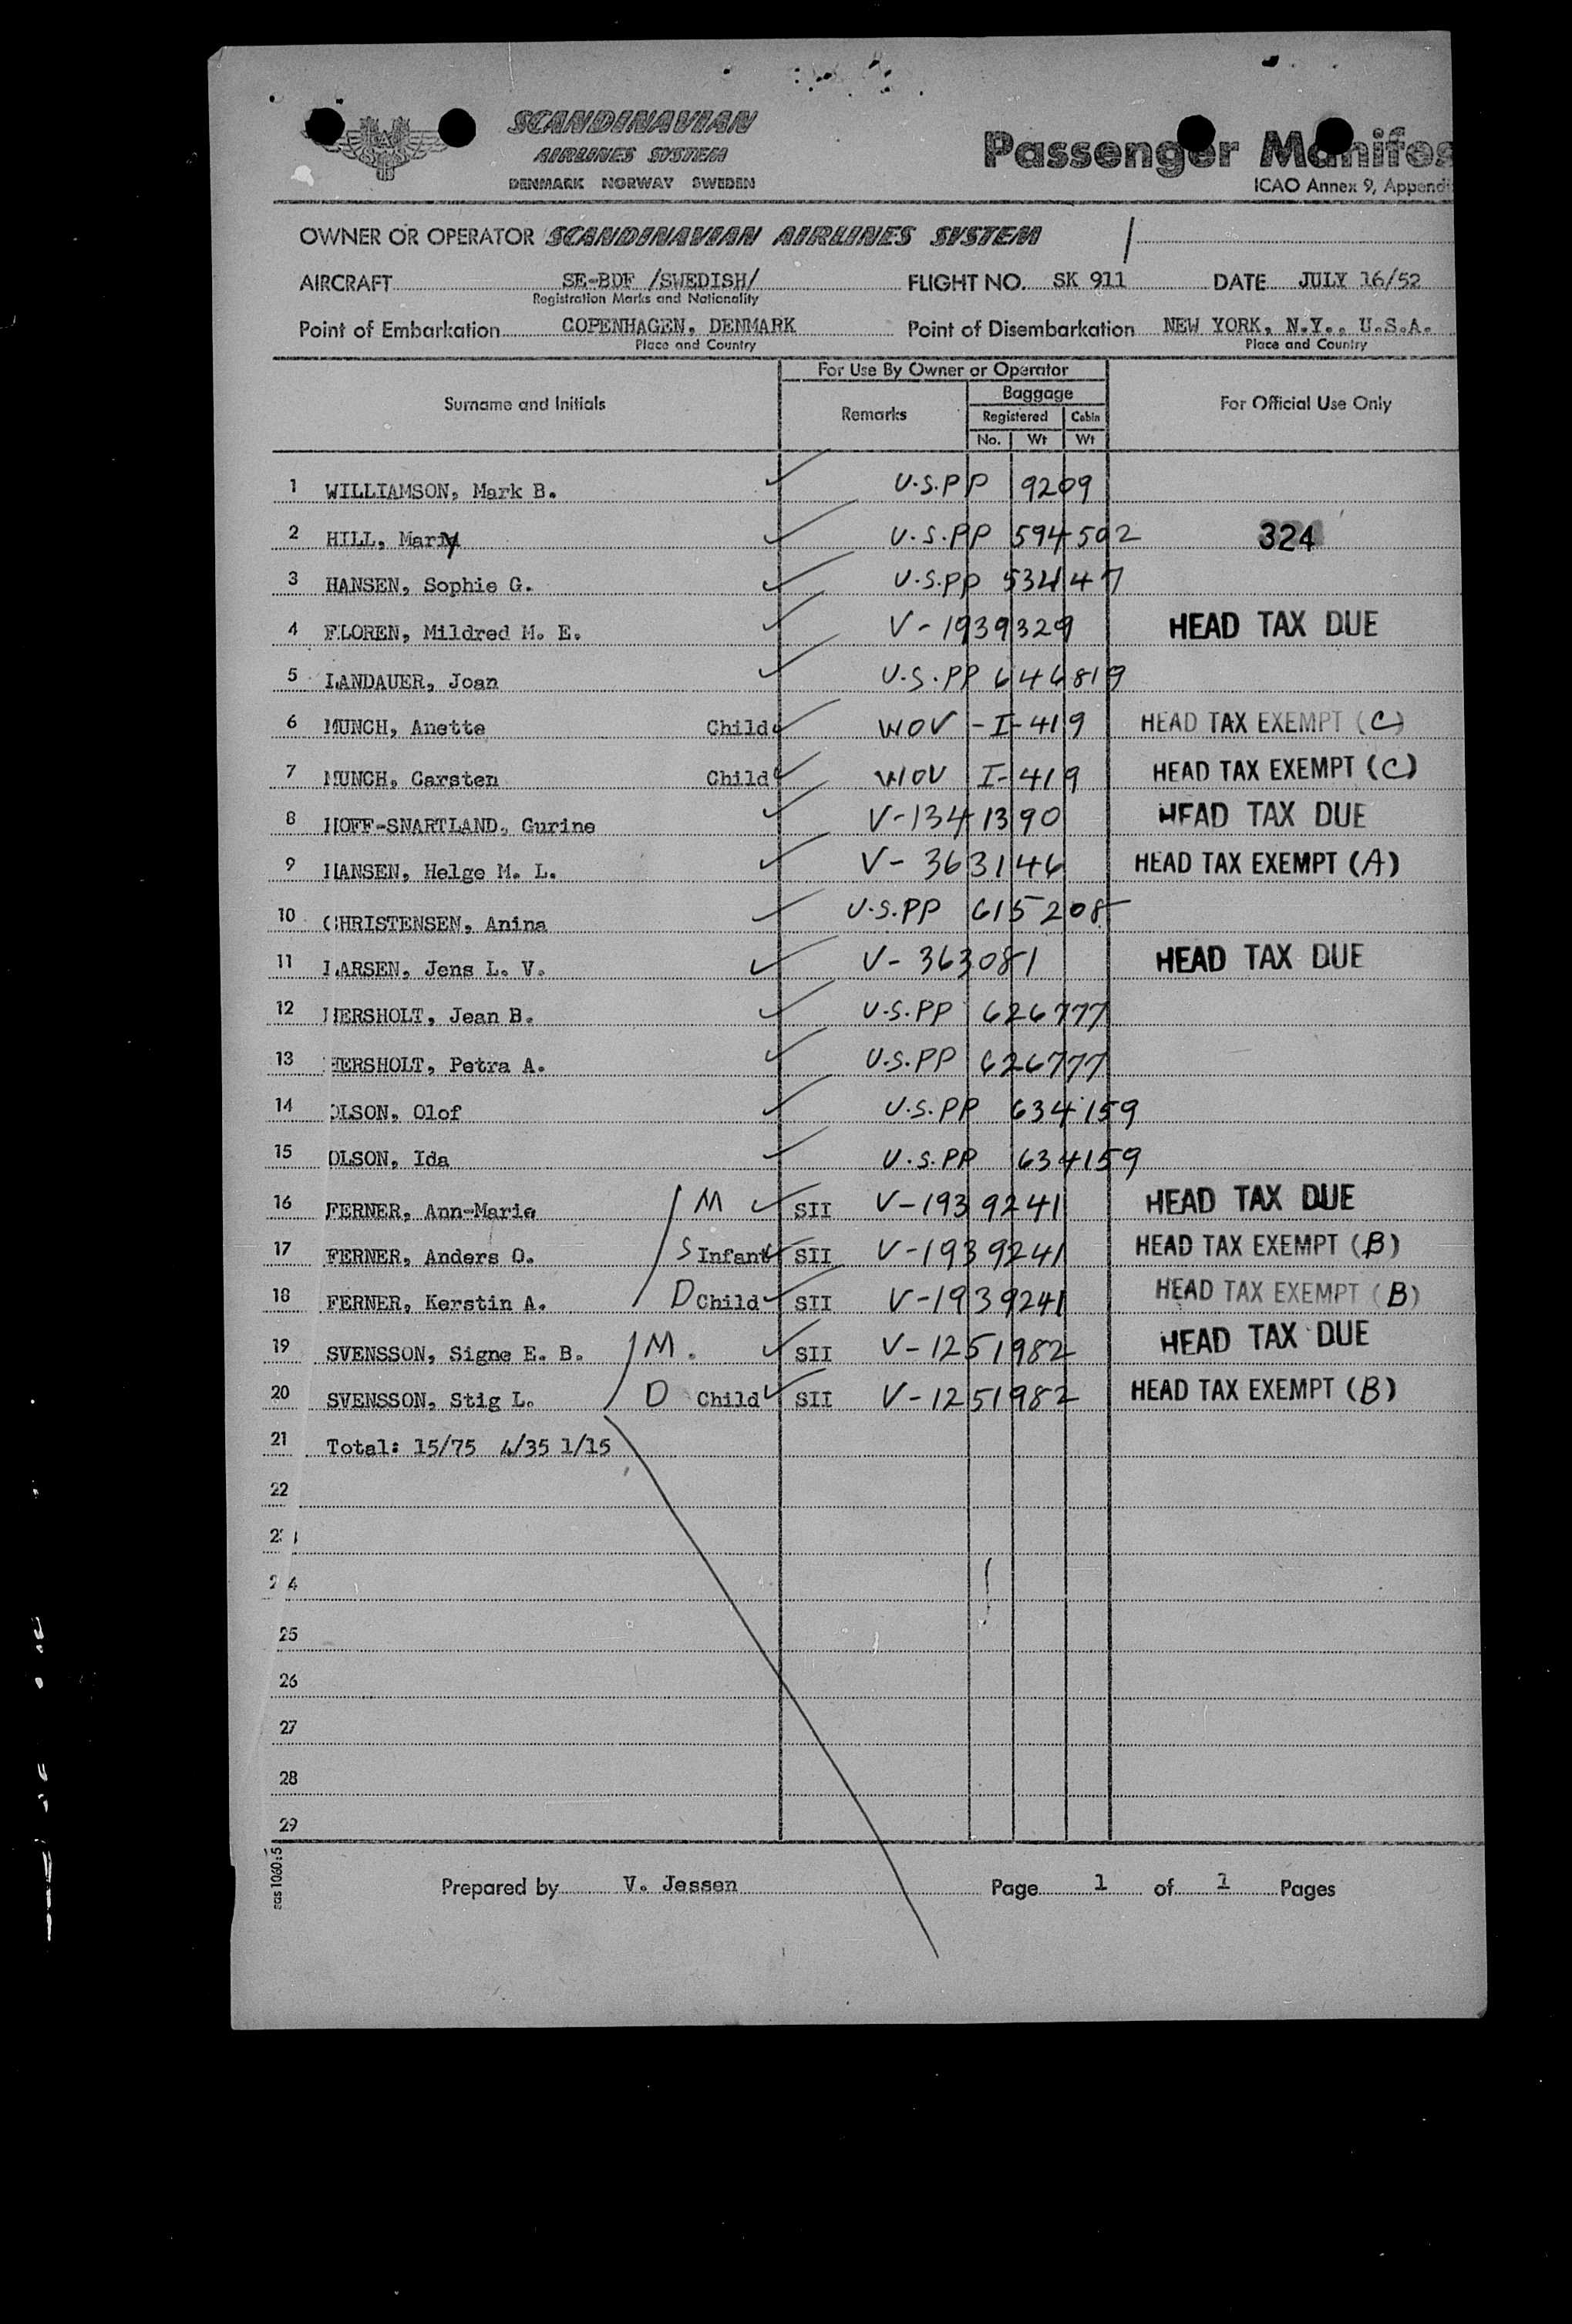 SCANDINAVIAN
AIRLINES SYSTEM
DENMARK NORWAY SWEDEN
Passenger Manifes
ICAO Annex 9, Appendi
OWNER OR OPERATOR SCANDINAVIAN AIRLINES SYSTEM
AIRCRAFT SE-BDF /SWEDISH/ FLIGHT NO. SK 911 DATE JULY 16/52
Registration Marks and Nationality
Point of Embarkation COPENHAGEN, DENMARK Point of Disembarkation NEW YORK, N.Y., U.S.A.
Place and Country Place and Country
For Use By Owner or Operator
Surname and Initials Remarks Baggage For Official Use Only
Registered Cabin
No. Wt Wt
1 WILLIAMSON, Mark B. U.S.PP 9209
2 HILL, Mary U.S.PP 594502 324
3 HANSEN, Sophie G. U.S.PP 534147
4 FLOREN, Mildred M. E. V-1939329 HEAD TAX DUE
5 LANDAUER, Joan U.S.PP 646819
6 MUNCH, Anette Child WOV-I-419 HEAD TAX EXEMPT (C)
7 MUNCH, Carsten Child WOV I-419 HEAD TAX EXEMPT (C)
8 HOFF-SNARTLAND, Gurine V-1341390 HEAD TAX DUE
9 HANSEN, Helge M. L. V-363146 HEAD TAX EXEMPT (A)
10 CHRISTENSEN, Anina U.S.PP 615208
11 LARSEN, Jens L. V. V-363081 HEAD TAX DUE
12 HERSHOLT, Jean B. U.S.PP 626777
13 HERSHOLT, Petra A. U.S.PP 626777
14 OLSON, Olof U.S.PP 634159
15 OLSON, Ida U.S.PP 634159
16 FERNER, Ann-Marie M SII V-1939241 HEAD TAX DUE
17 FERNER, Anders O. S Infant SII V-1939241 HEAD TAX EXEMPT (B)
18 FERNER, Kerstin A. D Child SII V-1939241 HEAD TAX EXEMPT (B)
19 SVENSSON, Signe E. B. M. SII V-1251982 HEAD TAX DUE
20 SVENSSON, Stig L. D Child SII V-1251982 HEAD TAX EXEMPT (B)
21 Total: 15/75 4/35 1/15
22
23
24
25
26
27
28
29
sas 1060:5
Prepared by V. Jessen Page 1 of 1 Pages